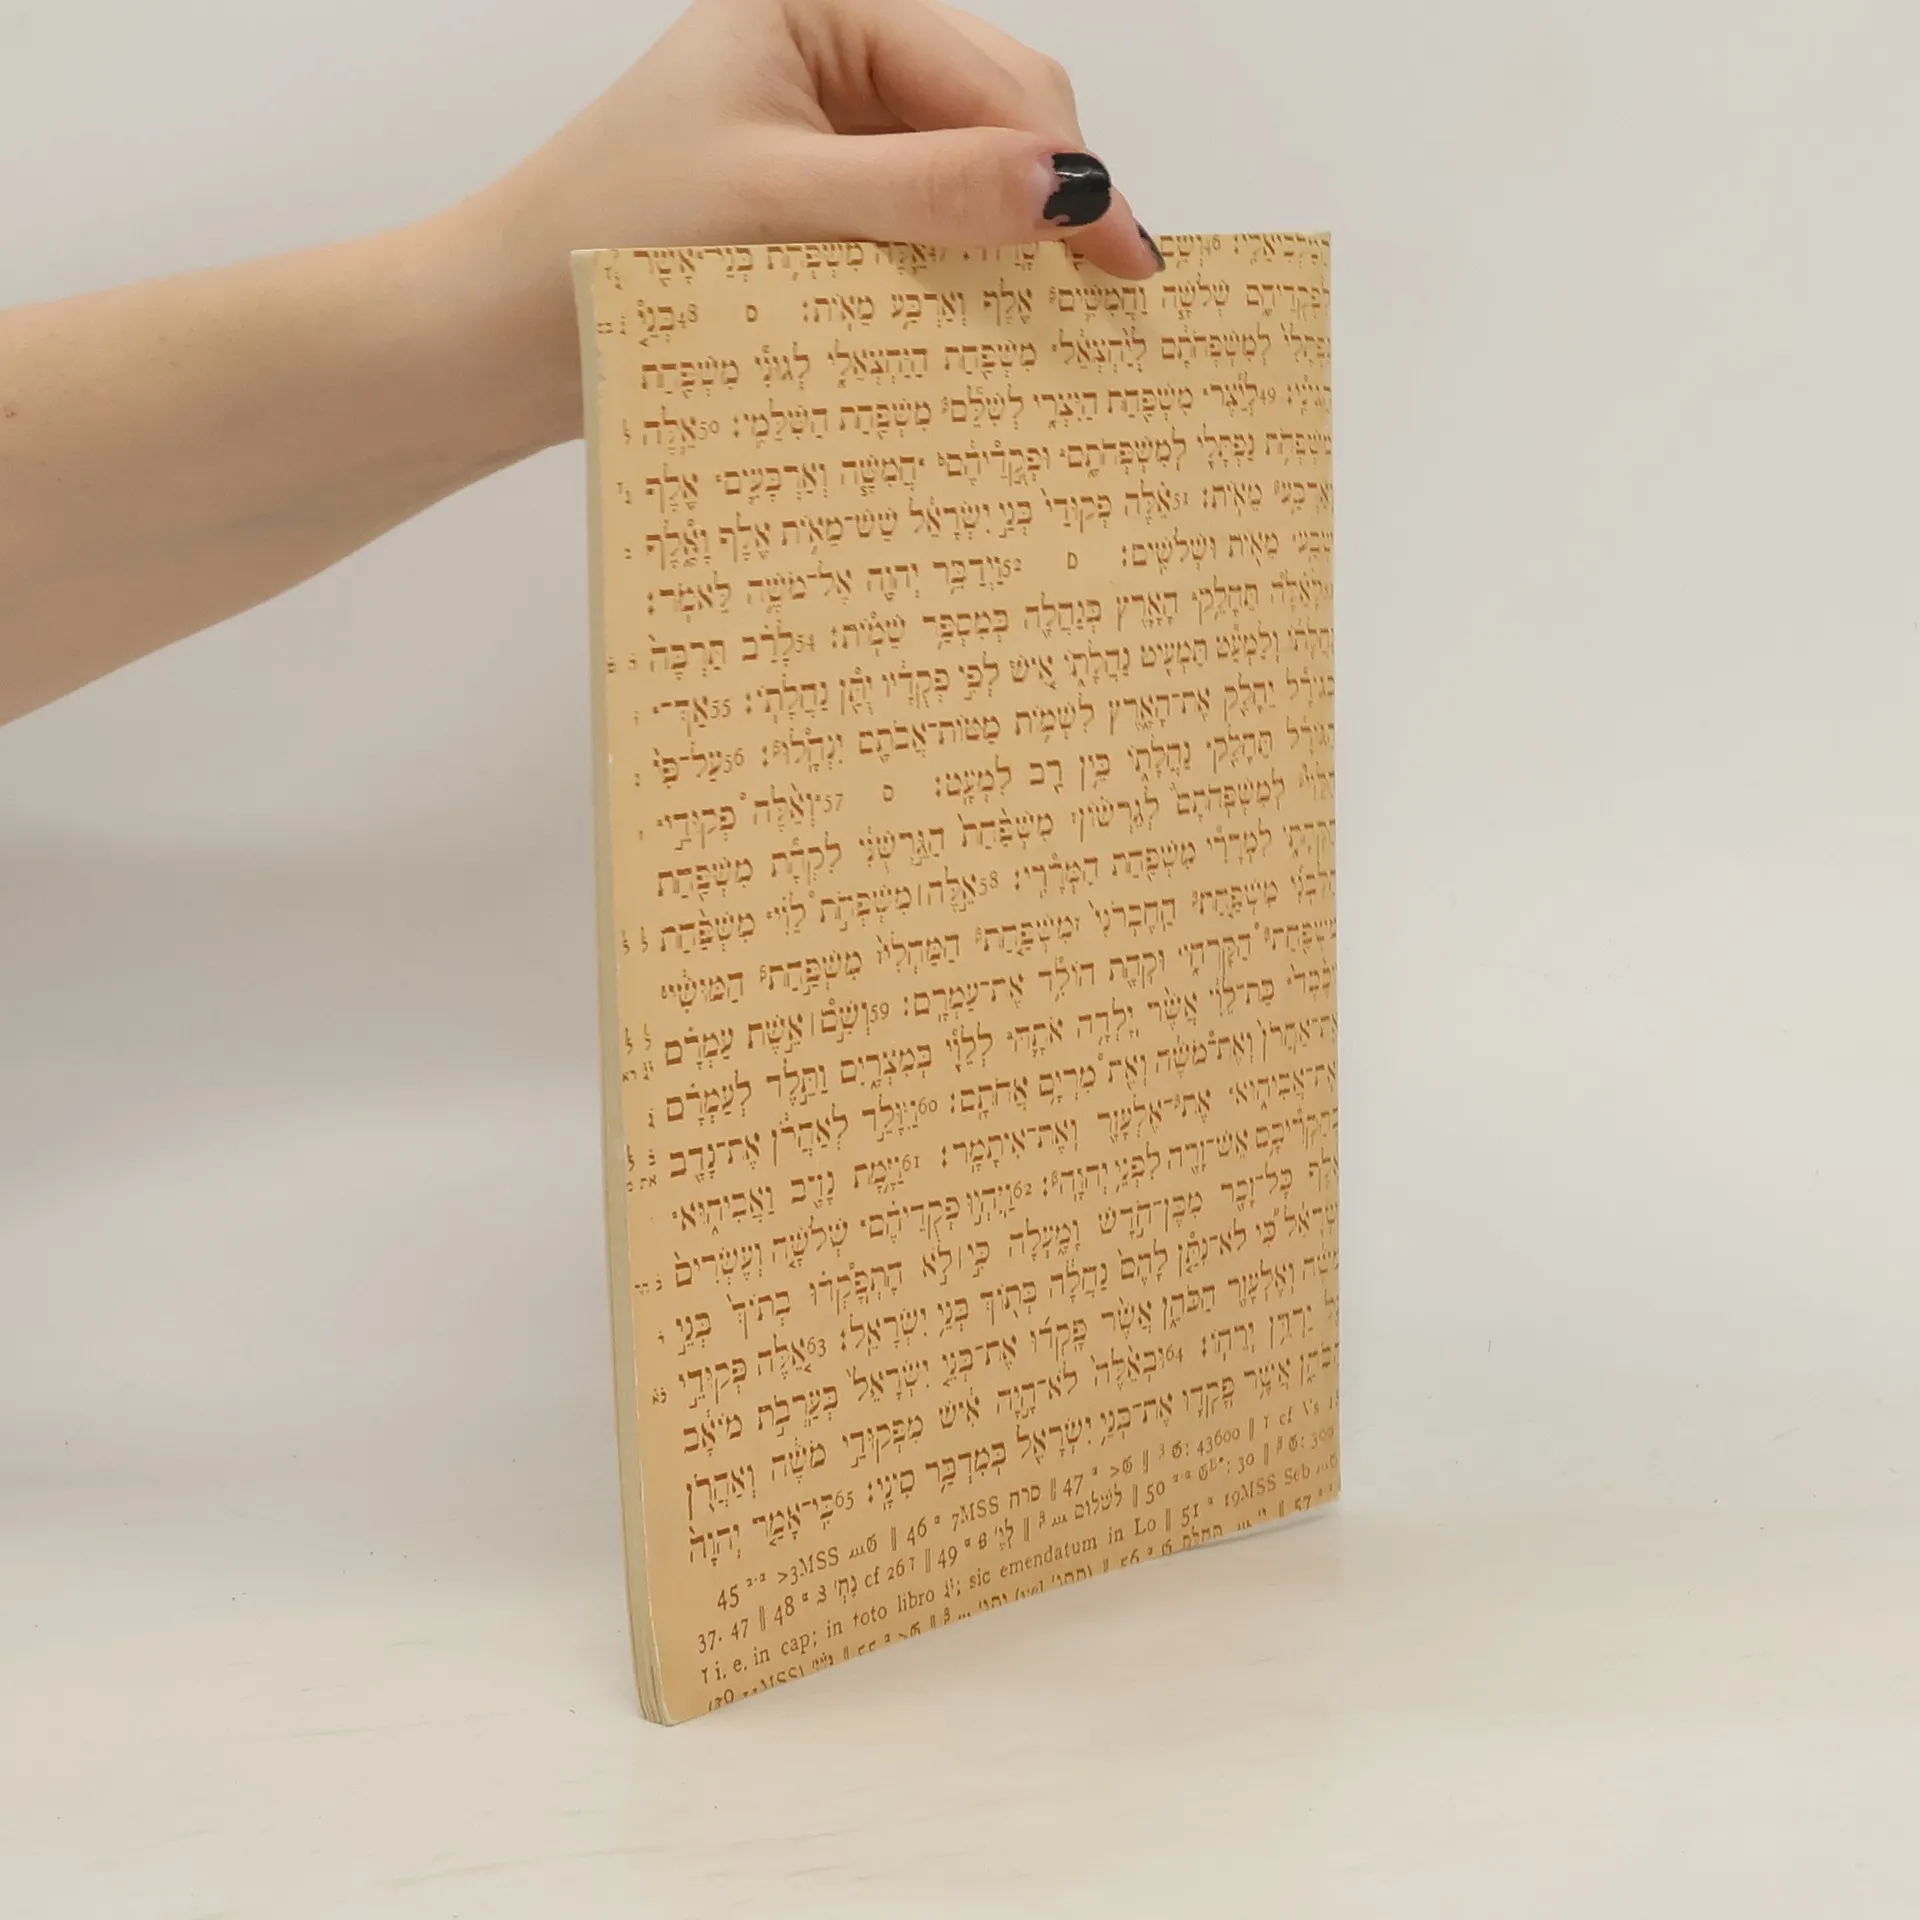 46וְשֵׁם 47אֵלֶּה מִשְׁפְּחֹת בְּנֵי־אָשֵׁר
לִפְקֻדֵיהֶם שְׁלֹשָׁה וַחֲמִשִּׁים אֶלֶף וְאַרְבַּע מֵאוֹת׃ ס 48בְּנֵי
נַפְתָּלִי לְמִשְׁפְּחֹתָם לְיַחְצְאֵל מִשְׁפַּחַת הַיַּחְצְאֵלִי לְגוּנִי מִשְׁפַּחַת
הַגּוּנִי׃ 49לְיֵצֶר מִשְׁפַּחַת הַיִּצְרִי לְשִׁלֵּם מִשְׁפַּחַת הַשִּׁלֵּמִי׃ 50אֵלֶּה
מִשְׁפְּחֹת נַפְתָּלִי לְמִשְׁפְּחֹתָם וּפְקֻדֵיהֶם חֲמִשָּׁה וְאַרְבָּעִים אֶלֶף
וְאַרְבַּע מֵאוֹת׃ 51אֵלֶּה פְּקוּדֵי בְּנֵי יִשְׂרָאֵל שֵׁשׁ־מֵאוֹת אֶלֶף וָאָלֶף
שְׁבַע מֵאוֹת וּשְׁלֹשִׁים׃ ס 52וַיְדַבֵּר יְהוָה אֶל־מֹשֶׁה לֵּאמֹר׃
לָאֵלֶּה תֵּחָלֵק הָאָרֶץ בְּנַחֲלָה בְּמִסְפַּר שֵׁמוֹת׃ 54לָרַב תַּרְבֶּה
נַחֲלָתוֹ וְלַמְעַט תַּמְעִיט נַחֲלָתוֹ אִישׁ לְפִי פְקֻדָיו יֻתַּן נַחֲלָתוֹ׃ 55אַךְ־
בְּגוֹרָל יֵחָלֵק אֶת־הָאָרֶץ לִשְׁמוֹת מַטּוֹת־אֲבֹתָם יִנְחָלוּ׃ 56עַל־פִּי
הַגּוֹרָל תֵּחָלֵק נַחֲלָתוֹ בֵּין רַב לִמְעָט׃ ס 57וְאֵלֶּה פְקוּדֵי
הַלֵּוִי לְמִשְׁפְּחֹתָם לְגֵרְשׁוֹן מִשְׁפַּחַת הַגֵּרְשֻׁנִּי לִקְהָת מִשְׁפַּחַת
הַקְּהָתִי לִמְרָרִי מִשְׁפַּחַת הַמְּרָרִי׃ 58אֵלֶּה׀ מִשְׁפְּחֹת לֵוִי מִשְׁפַּחַת
הַלִּבְנִי מִשְׁפַּחַת הַחֶבְרֹנִי מִשְׁפַּחַת הַמַּחְלִי מִשְׁפַּחַת הַמּוּשִׁי
מִשְׁפַּחַת הַקָּרְחִי וּקְהָת הוֹלִד אֶת־עַמְרָם׃ 59וְשֵׁם׀ אֵשֶׁת עַמְרָם
יוֹכֶבֶד בַּת־לֵוִי אֲשֶׁר יָלְדָה אֹתָהּ לְלֵוִי בְּמִצְרָיִם וַתֵּלֶד לְעַמְרָם
אֶת־אַהֲרֹן וְאֶת־מֹשֶׁה וְאֵת מִרְיָם אֲחֹתָם׃ 60וַיִּוָּלֵד לְאַהֲרֹן אֶת־נָדָב
וְאֶת־אֲבִיהוּא אֶת־אֶלְעָזָר וְאֶת־אִיתָמָר׃ 61וַיָּמָת נָדָב וַאֲבִיהוּא
בְּהַקְרִיבָם אֵשׁ־זָרָה לִפְנֵי יְהוָה׃ 62וַיִּהְיוּ פְקֻדֵיהֶם שְׁלֹשָׁה וְעֶשְׂרִים
אֶלֶף כָּל־זָכָר מִבֶּן־חֹדֶשׁ וָמָעְלָה כִּי׀ לֹא הָתְפָּקְדוּ בְּתוֹךְ בְּנֵי
יִשְׂרָאֵל כִּי לֹא־נִתַּן לָהֶם נַחֲלָה בְּתוֹךְ בְּנֵי יִשְׂרָאֵל׃ 63אֵלֶּה פְּקוּדֵי
מֹשֶׁה וְאֶלְעָזָר הַכֹּהֵן אֲשֶׁר פָּקְדוּ אֶת־בְּנֵי יִשְׂרָאֵל בְּעַרְבֹת מוֹאָב
עַל יַרְדֵּן יְרֵחוֹ׃ 64וּבְאֵלֶּה לֹא־הָיָה אִישׁ מִפְּקוּדֵי מֹשֶׁה וְאַהֲרֹן
הַכֹּהֵן אֲשֶׁר פָּקְדוּ אֶת־בְּנֵי יִשְׂרָאֵל בְּמִדְבַּר סִינָי׃ 65כִּי־אָמַר יְהוָה
45 ᵃ⁻ᵃ >3MSS ‖ 46 ᵃ 7MSS סרח ‖ 47 ᵃ >𝔊 ‖ ᵝ 𝔊: 43600 ‖ ᵞ cf Vs
37. 47 ‖ 48 ᵃ cf 26 ‖ 49 ᵃ ‖ ᵝ לשלום ‖ 50 ᵃ⁻ᵃ 30 ‖ ᵝ 𝔊: 300
i. e. in cap; in toto libro; sic emendatum in Lo ‖ 51 ᵃ 19MSS Seb
56 ᵃ 𝔊 תחלק ‖ 57